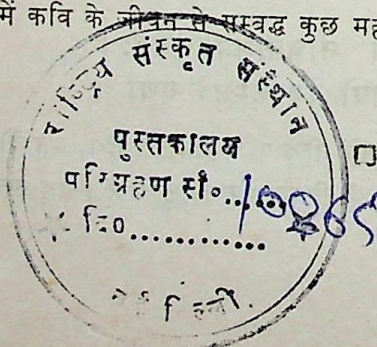 में कवि के जीवन से सम्बद्ध कुछ मह
राष्ट्रिय संस्कृत संस्थान
पुस्तकालय
परिग्रहण सं०....10865
दि0.............